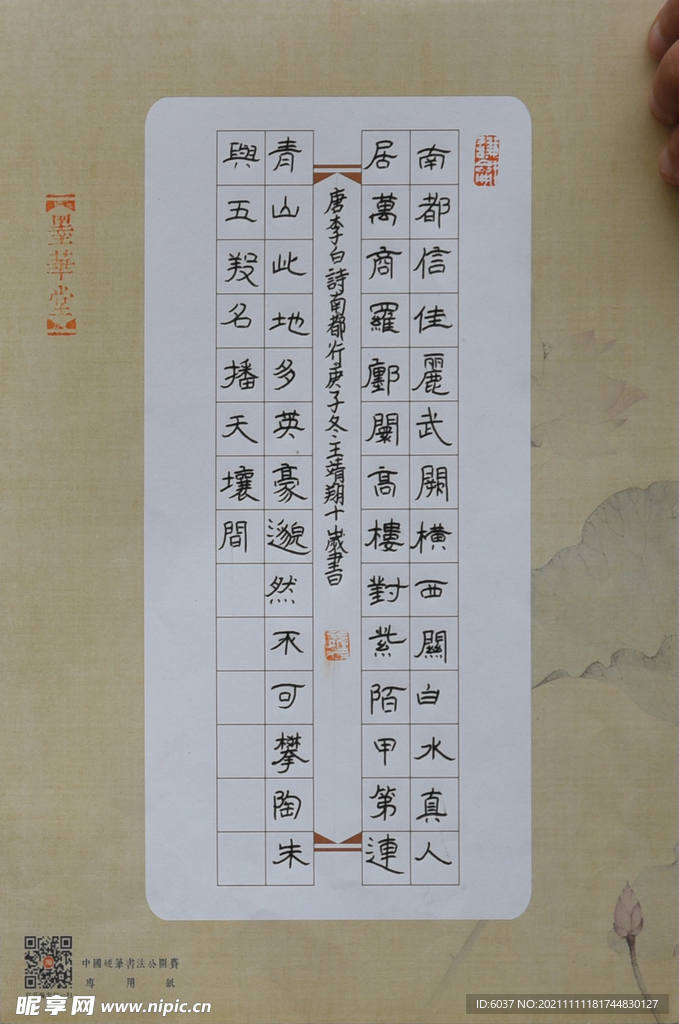 南都信佳麗武闕橫西關白水真人
居萬商羅鄽闤高樓對紫陌甲第連
唐李白詩南都行庚子冬王靖翔十歲書
青山此地多英豪邈然不可攀陶朱
與五羖名播天壤間
墨華堂
中國硬筆書法公開賽
專用紙
昵享网 www.nipic.cn
ID:6037 NO:20211111181744830127